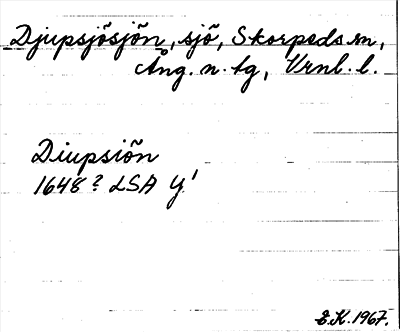 Djupsjösjön, sjö, Skorpeds sn,
Ång. n. tg, Vrnl. l.
Diupsiön
1648? LSA Y¹
E.K. 1967.